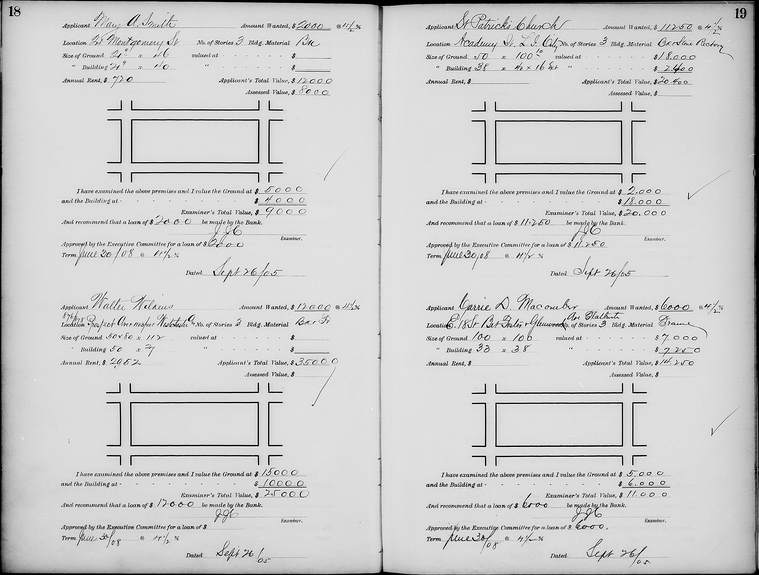 18
Applicant Mary A. Smith Amount Wanted, $ 2000 @ 4 1/2 %
Location 24 Montgomery St No. of Stories 3 Bldg. Material
Size of Ground x valued at $
" Building x 40 " $
Annual Rent, $ 720 Applicant's Total Value, $ 12000
Assessed Value, $ 8000
I have examined the above premises and I value the Ground at $ 5000
and the Building at $ 4000
Examiner's Total Value, $ 9000
And recommend that a loan of $ 2000 be made by the Bank.
Examiner.
Approved by the Executive Committee for a loan of $ 2000
Term June 30/08 @ 4 1/2 %
Dated Sept 26/05
Applicant Walter Amount Wanted, $ 12000 @ 4 1/2 %
Location Prospect Ave No. of Stories 3 Bldg. Material
Size of Ground 50x50 x 112 valued at $
" Building 50 x " $
Annual Rent, $ 2952 Applicant's Total Value, $ 35000
Assessed Value, $
I have examined the above premises and I value the Ground at $ 15000
and the Building at $ 10000
Examiner's Total Value, $ 25000
And recommend that a loan of $ 12000 be made by the Bank.
Examiner.
Approved by the Executive Committee for a loan of $
Term June 30/08 @ 4 1/2 %
Dated Sept 26/05
19
Applicant St Patrick's Church Amount Wanted, $ 11250 @ 4 1/2 %
Location Academy St. L. I. City No. of Stories 3 Bldg. Material Rectory
Size of Ground 50 x 100 valued at $ 18.000
" Building 38 x " $ 2400
Annual Rent, $ Applicant's Total Value, $ 20.400
Assessed Value, $
I have examined the above premises and I value the Ground at $ 2.000
and the Building at $ 18.000
Examiner's Total Value, $ 20.000
And recommend that a loan of $ 11.250 be made by the Bank.
Examiner.
Approved by the Executive Committee for a loan of $ 11.250
Term June 30/08 @ 4 1/2 %
Dated Sept 26/05
Applicant Carrie D. Macomber Amount Wanted, $ 6000 @ 4 1/2 %
Location E. 18 St. Bet No. of Stories 3 Bldg. Material Frame
Size of Ground 100 x 100 valued at $ 7.000
" Building 33 x 38 " $ 7.250
Annual Rent, $ Applicant's Total Value, $ 14.250
Assessed Value, $
I have examined the above premises and I value the Ground at $ 5.000
and the Building at $ 6.000
Examiner's Total Value, $ 11.000
And recommend that a loan of $ 6000 be made by the Bank.
Examiner.
Approved by the Executive Committee for a loan of $ 6000.
Term June 30/08 @ 4 1/2 %
Dated Sept 26/05